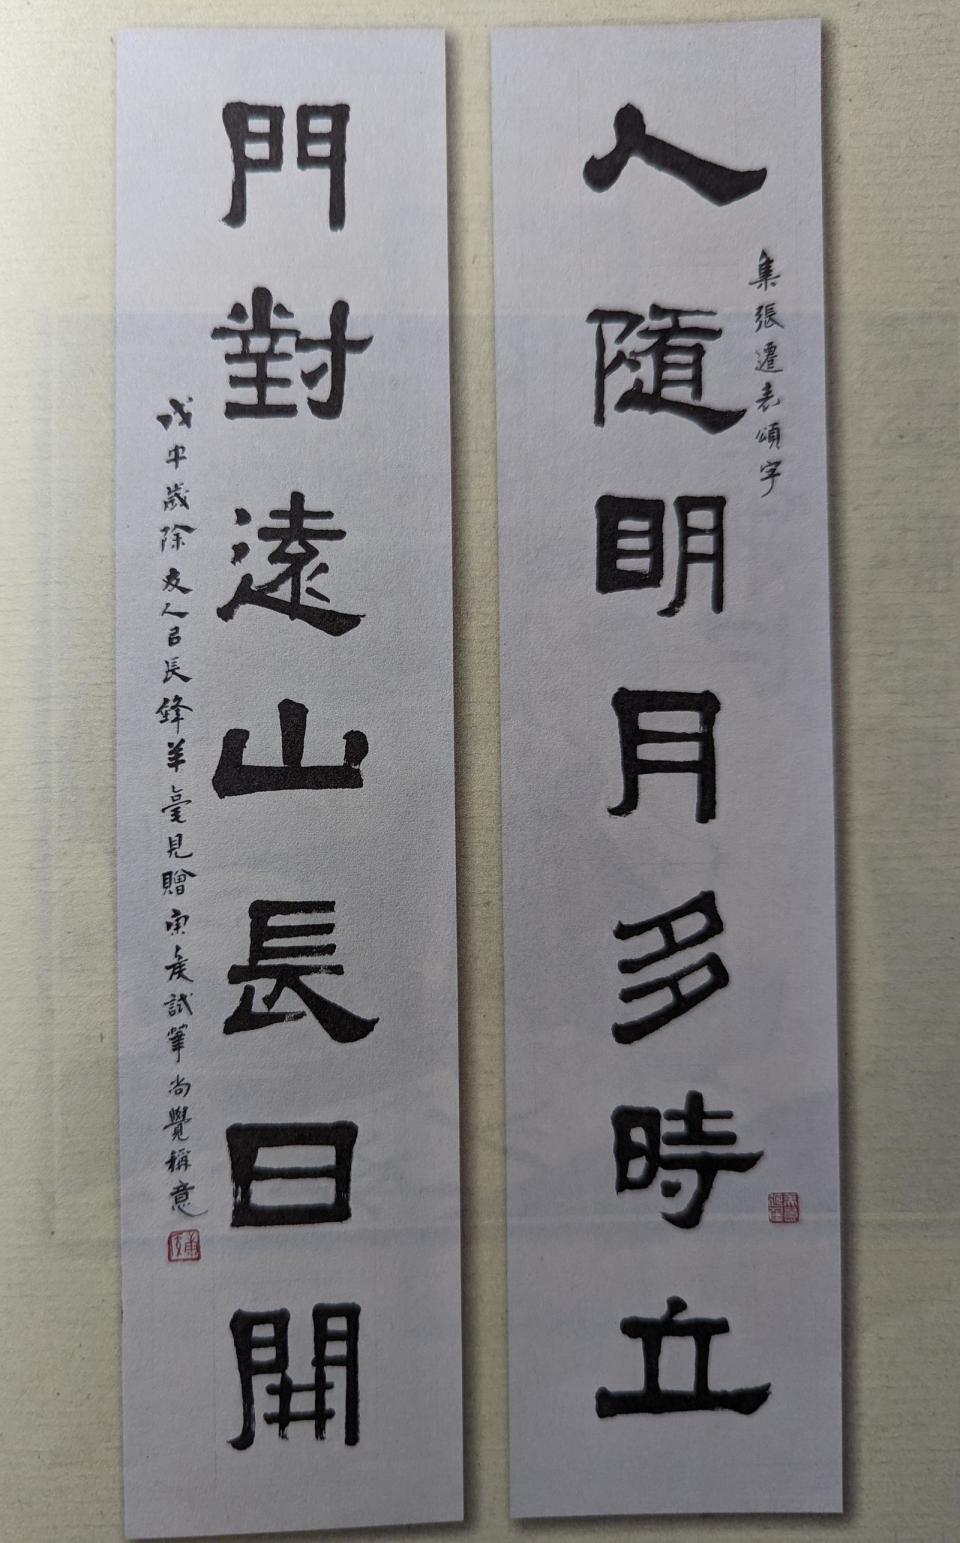 集張遷表頌字
人隨明月多時立
門對遠山長日開
戊申歲除友人㠯長鋒羊毫見贈康矦試筆尚覺稱意